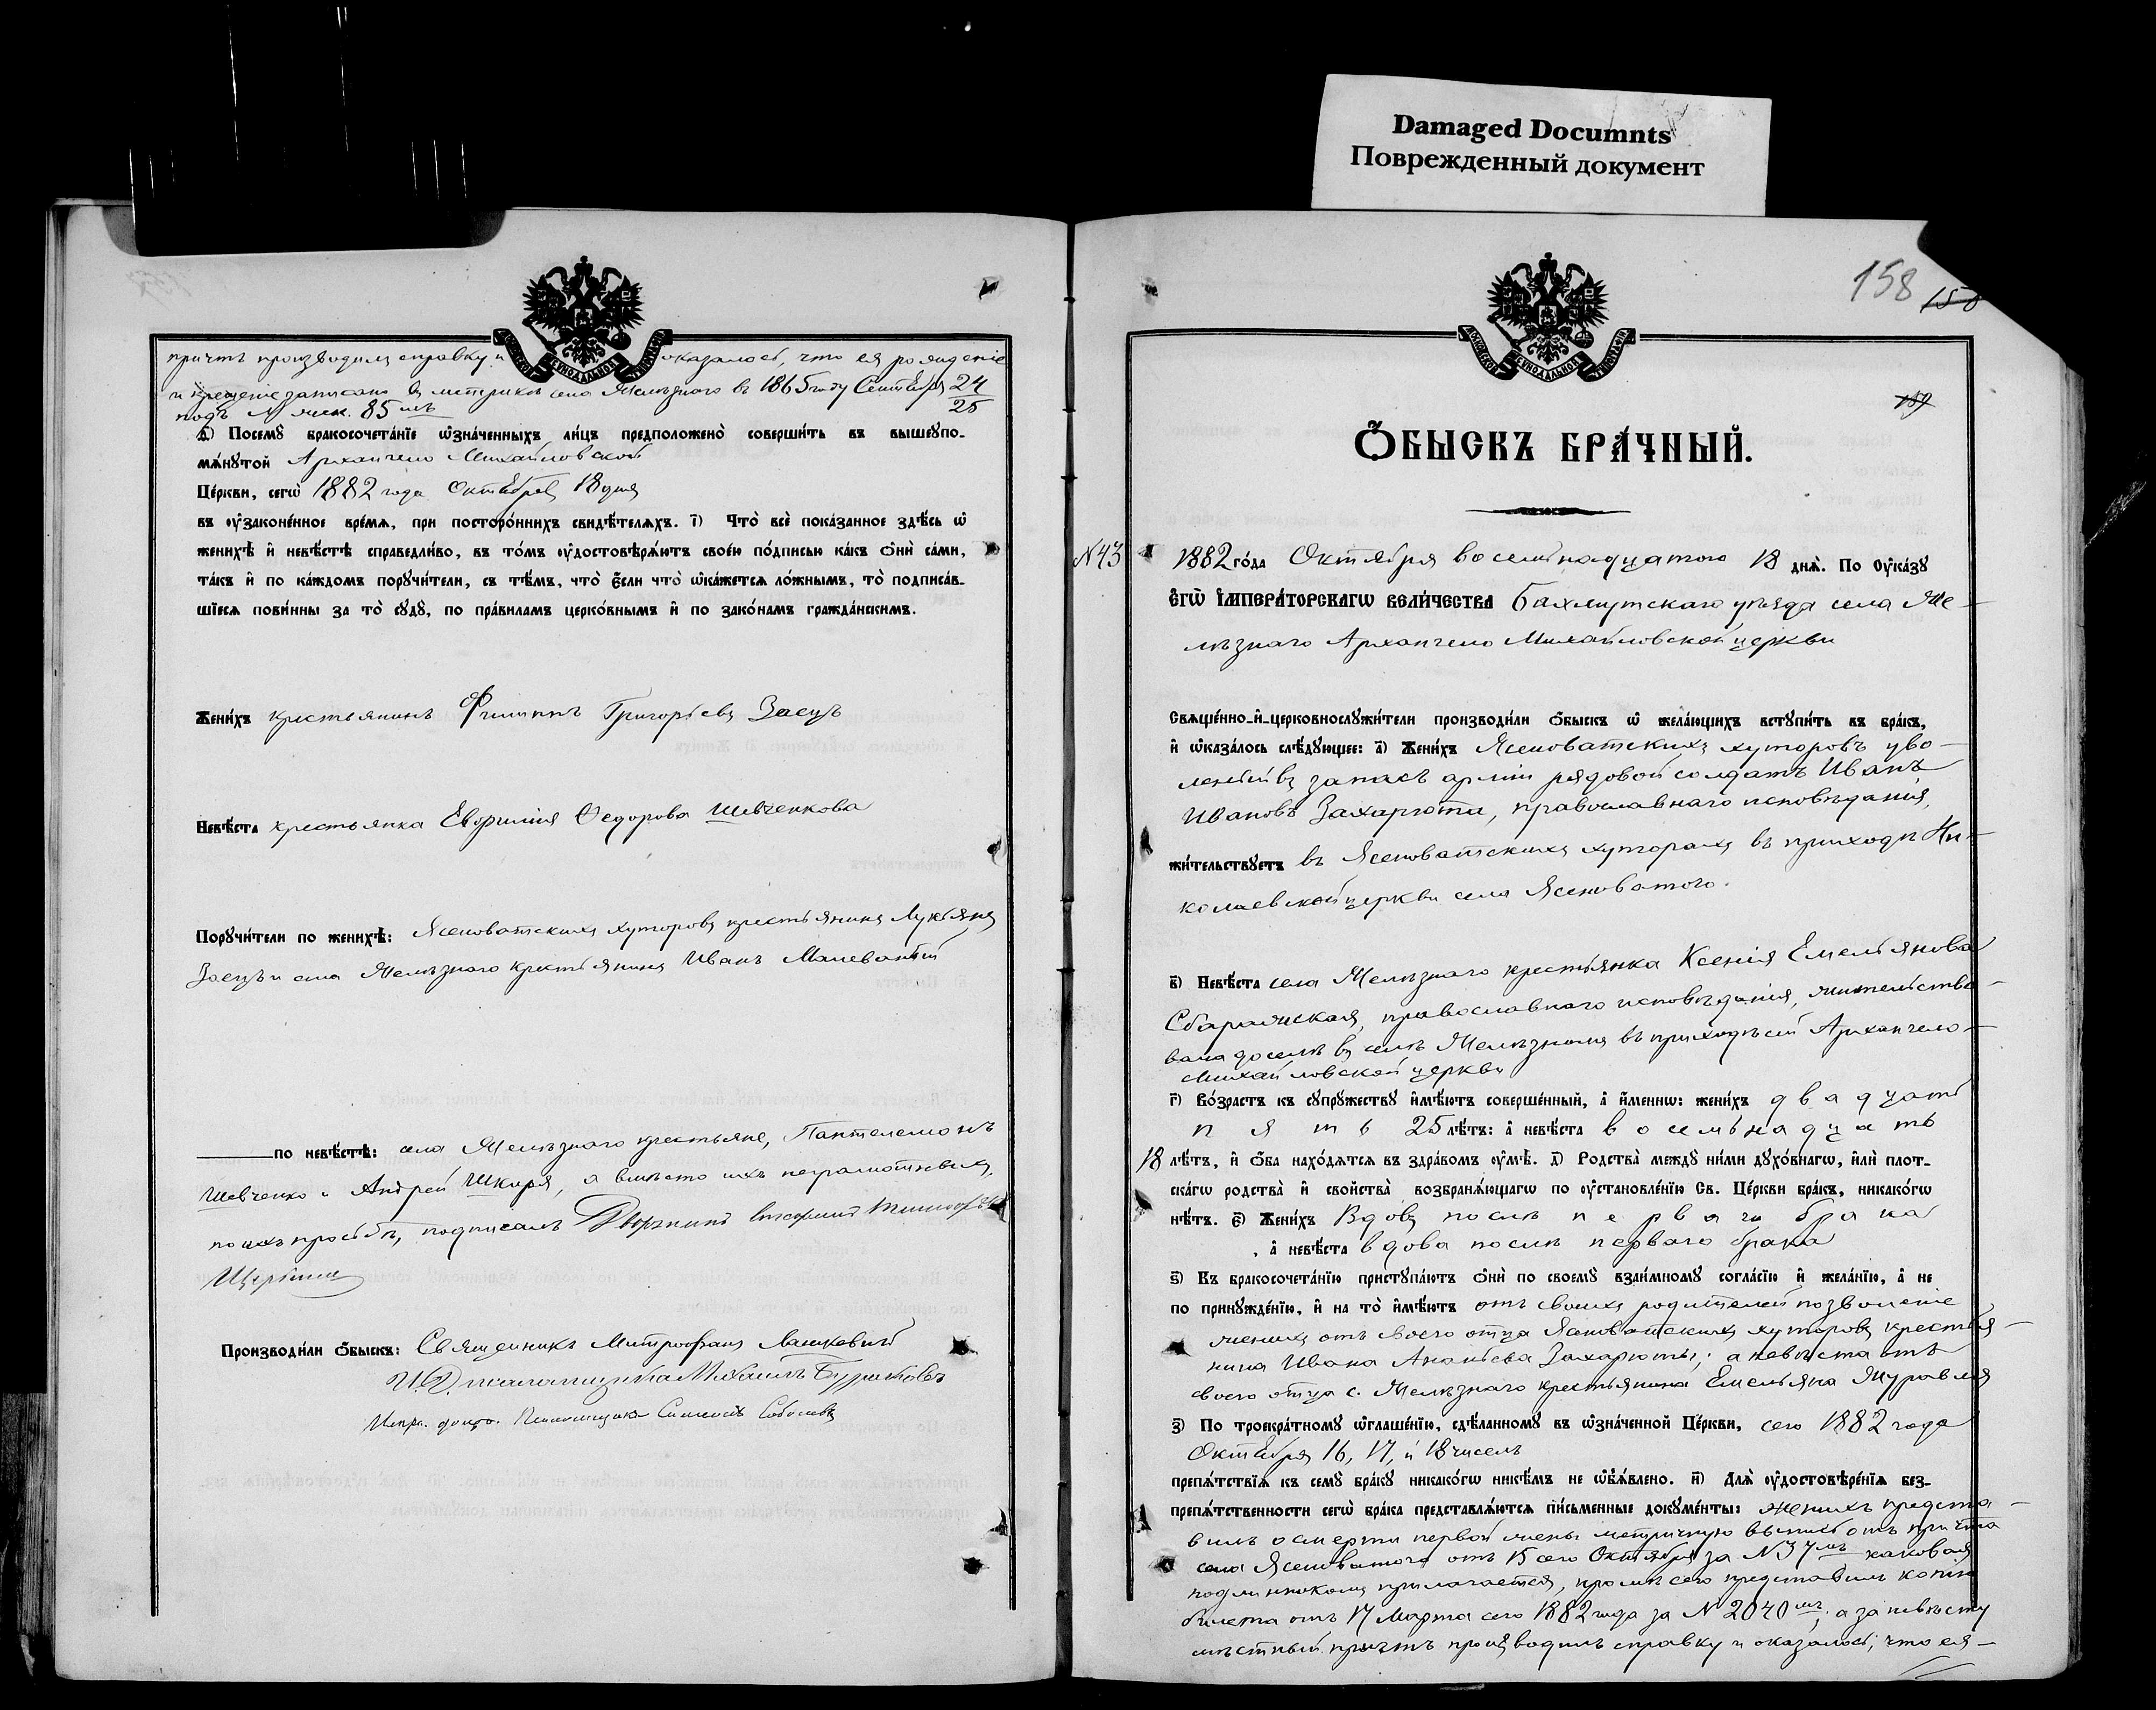 Damaged Documnts
Поврежденный документ
причтъ производилъ справку и оказалось, что ея рожденіе
и крещеніе записано въ метрикѣ села Желѣзнаго въ 1865 году Сентября 24/25
подъ № жен. 85мъ
д҃) Посемꙋ бракосочета́нїе ѡзна́ченныхъ ли́цъ предположено̀ соверши́ть въ вышеупо-
мѧ́нꙋтой Архангело Михайловской
Це́ркви, сегѡ̀ 1882 года Октября 18 дня
въ ᲂу҆зако́ненное вре́мѧ, при посторо́ннихъ свидѣ́телѧхъ. і҃) Что̀ всѐ пока́занное здѣ́сь ѡ҆
женихѣ̀ и҆ невѣ́стѣ справедли́во, въ то́мъ ᲂу҆достовѣрѧ́ютъ свое́ю по́дписью ка́къ ѻ҆нѝ са́ми,
та́къ и҆ по ка́ждомъ порꙋчи́тели, съ тѣ́мъ, что̀ є҆́сли что̀ ѡ҆ка́жетсѧ ло́жнымъ, то̀ подписа́в-
шїесѧ пови́нны за то̀ сꙋдꙋ̀, по пра́виламъ церко́внымъ и҆ по зако́намъ гражда́нскимъ.
Жени́хъ крестьянинъ Филиппъ Григорьевъ Заецъ
Невѣ́ста крестьянка Евфимія Ѳедорова Шевченкова
Порꙋчи́тели по женихѣ̀: Ясеноватскихъ хуторовъ крестьянинъ Лукьянъ
Заецъ и села Желѣзнаго крестьянинъ Иванъ Малеваный
по невѣ́стѣ: села Желѣзнаго крестьяне, Пантелемонъ
Шевченко и Андрей Шкиря, а вмѣсто ихъ неграмотныхъ,
по ихъ просьбѣ, подписалъ Дворянинъ
Щербина
Производи́ли ѻ҆́быскъ: Священникъ Митрофанъ
И.Д. псаломщика Михаилъ
Испр. должн. Псаломщика Симеонъ Соболевъ
158 158
159
Ѻ҆́быскъ бра́чный.
№ 43
1882 го́да Октября восемьнадцатого 18 днѧ̀. По ᲂу҆ка́зꙋ
є҆гѡ̀ і҆мпера́торскагѡ вели́чества Бахмутскаго уѣзда села Же-
лѣзнаго Архангело Михайловской церкви
Свѧще́нно-и҆-церковнослꙋжи́тели производи́ли ѻ҆́быскъ ѡ҆ жела́ющихъ встꙋпи́ть въ бра́къ,
и҆ ѡ҆каза́лось слѣ́дꙋющее: а҃) Жени́хъ Ясеноватскихъ хуторовъ уво-
леный въ запасъ арміи рядовой солдатъ Иванъ
Ивановъ Захарюта, православнаго исповѣданія,
жи́тельствꙋетъ въ Ясеноватскихъ хуторахъ въ приходѣ Ни-
колаевской церкви села Ясеноватого.
в҃) Невѣ́ста села Желѣзнаго крестьянка Ксенія Емельянова
православнаго исповѣданія, жительство-
вала доселѣ въ селѣ Желѣзномъ въ приходѣ сей Архангело-
Михайловской церкви
г҃) Во́зрастъ къ сꙋпрꙋжествꙋ и҆мѣ́ютъ соверше́нный, а҆ и҆́менно: жени́хъ двадцать
пять 25 лѣ́тъ: а҆ невѣ́ста восемьнадцать
18 лѣ́тъ, и҆ ѻ҆́ба нахо́дѧтсѧ въ здра́вомъ ᲂу҆мѣ̀. д҃) Родства̀ междꙋ ни́ми дꙋхо́внагѡ, и҆лѝ плот-
ска́гѡ родства̀ и҆ сво́йства̀ возбранѧ́ющагѡ по ᲂу҆становле́нїю Св. Це́ркви бра́къ, никако́гѡ
нѣ́тъ. є҃) Жени́хъ Вдовъ послѣ перваго брака
, а҆ невѣ́ста вдова послѣ перваго брака
ѕ҃) Къ бракосочета́нїю пристꙋпа́ютъ ѻ҆нѝ по своемꙋ̀ взаи́мномꙋ согла́сїю и҆ жела́нїю, а҆ не
по принꙋжде́нїю, и҆ на то̀ и҆мѣ́ютъ отъ своихъ родителей позволеніе
женихъ отъ своего отца Ясеноватскихъ хуторовъ крестья-
нина Ивана Ананьева Захарюты; а невѣста отъ
своего отца с. Желѣзнаго крестьянина Емельяна Журавля
з҃) По троекра́тномꙋ ѡ҆глаше́нїю, сдѣ́ланномꙋ въ ѡ҆зна́ченной Це́ркви, сего 1882 года
Октября 16, 17, и 18 чиселъ
препѧ́тствїѧ къ семꙋ̀ бра́кꙋ никако́гѡ никѣ́мъ не ѡ҆б̾ѧ́влено. и҃) Длѧ̀ ᲂу҆достовѣре́нїѧ без-
препѧ́тственности сегѡ̀ бра́ка представлѧ́ютсѧ пи́сьменные докꙋме́нты: женихъ предста-
вилъ о смерти первой жены метричную выпись отъ причта
села Ясеноватого отъ 15 сего Октября за № 37мъ каковая
подлинникомъ прилагается, кромѣ сего представилъ копію
билета отъ 17 Марта сего 1882 года за № 2040мъ, а за невѣсту
мѣстный причтъ производилъ справку и оказалось, что ея-